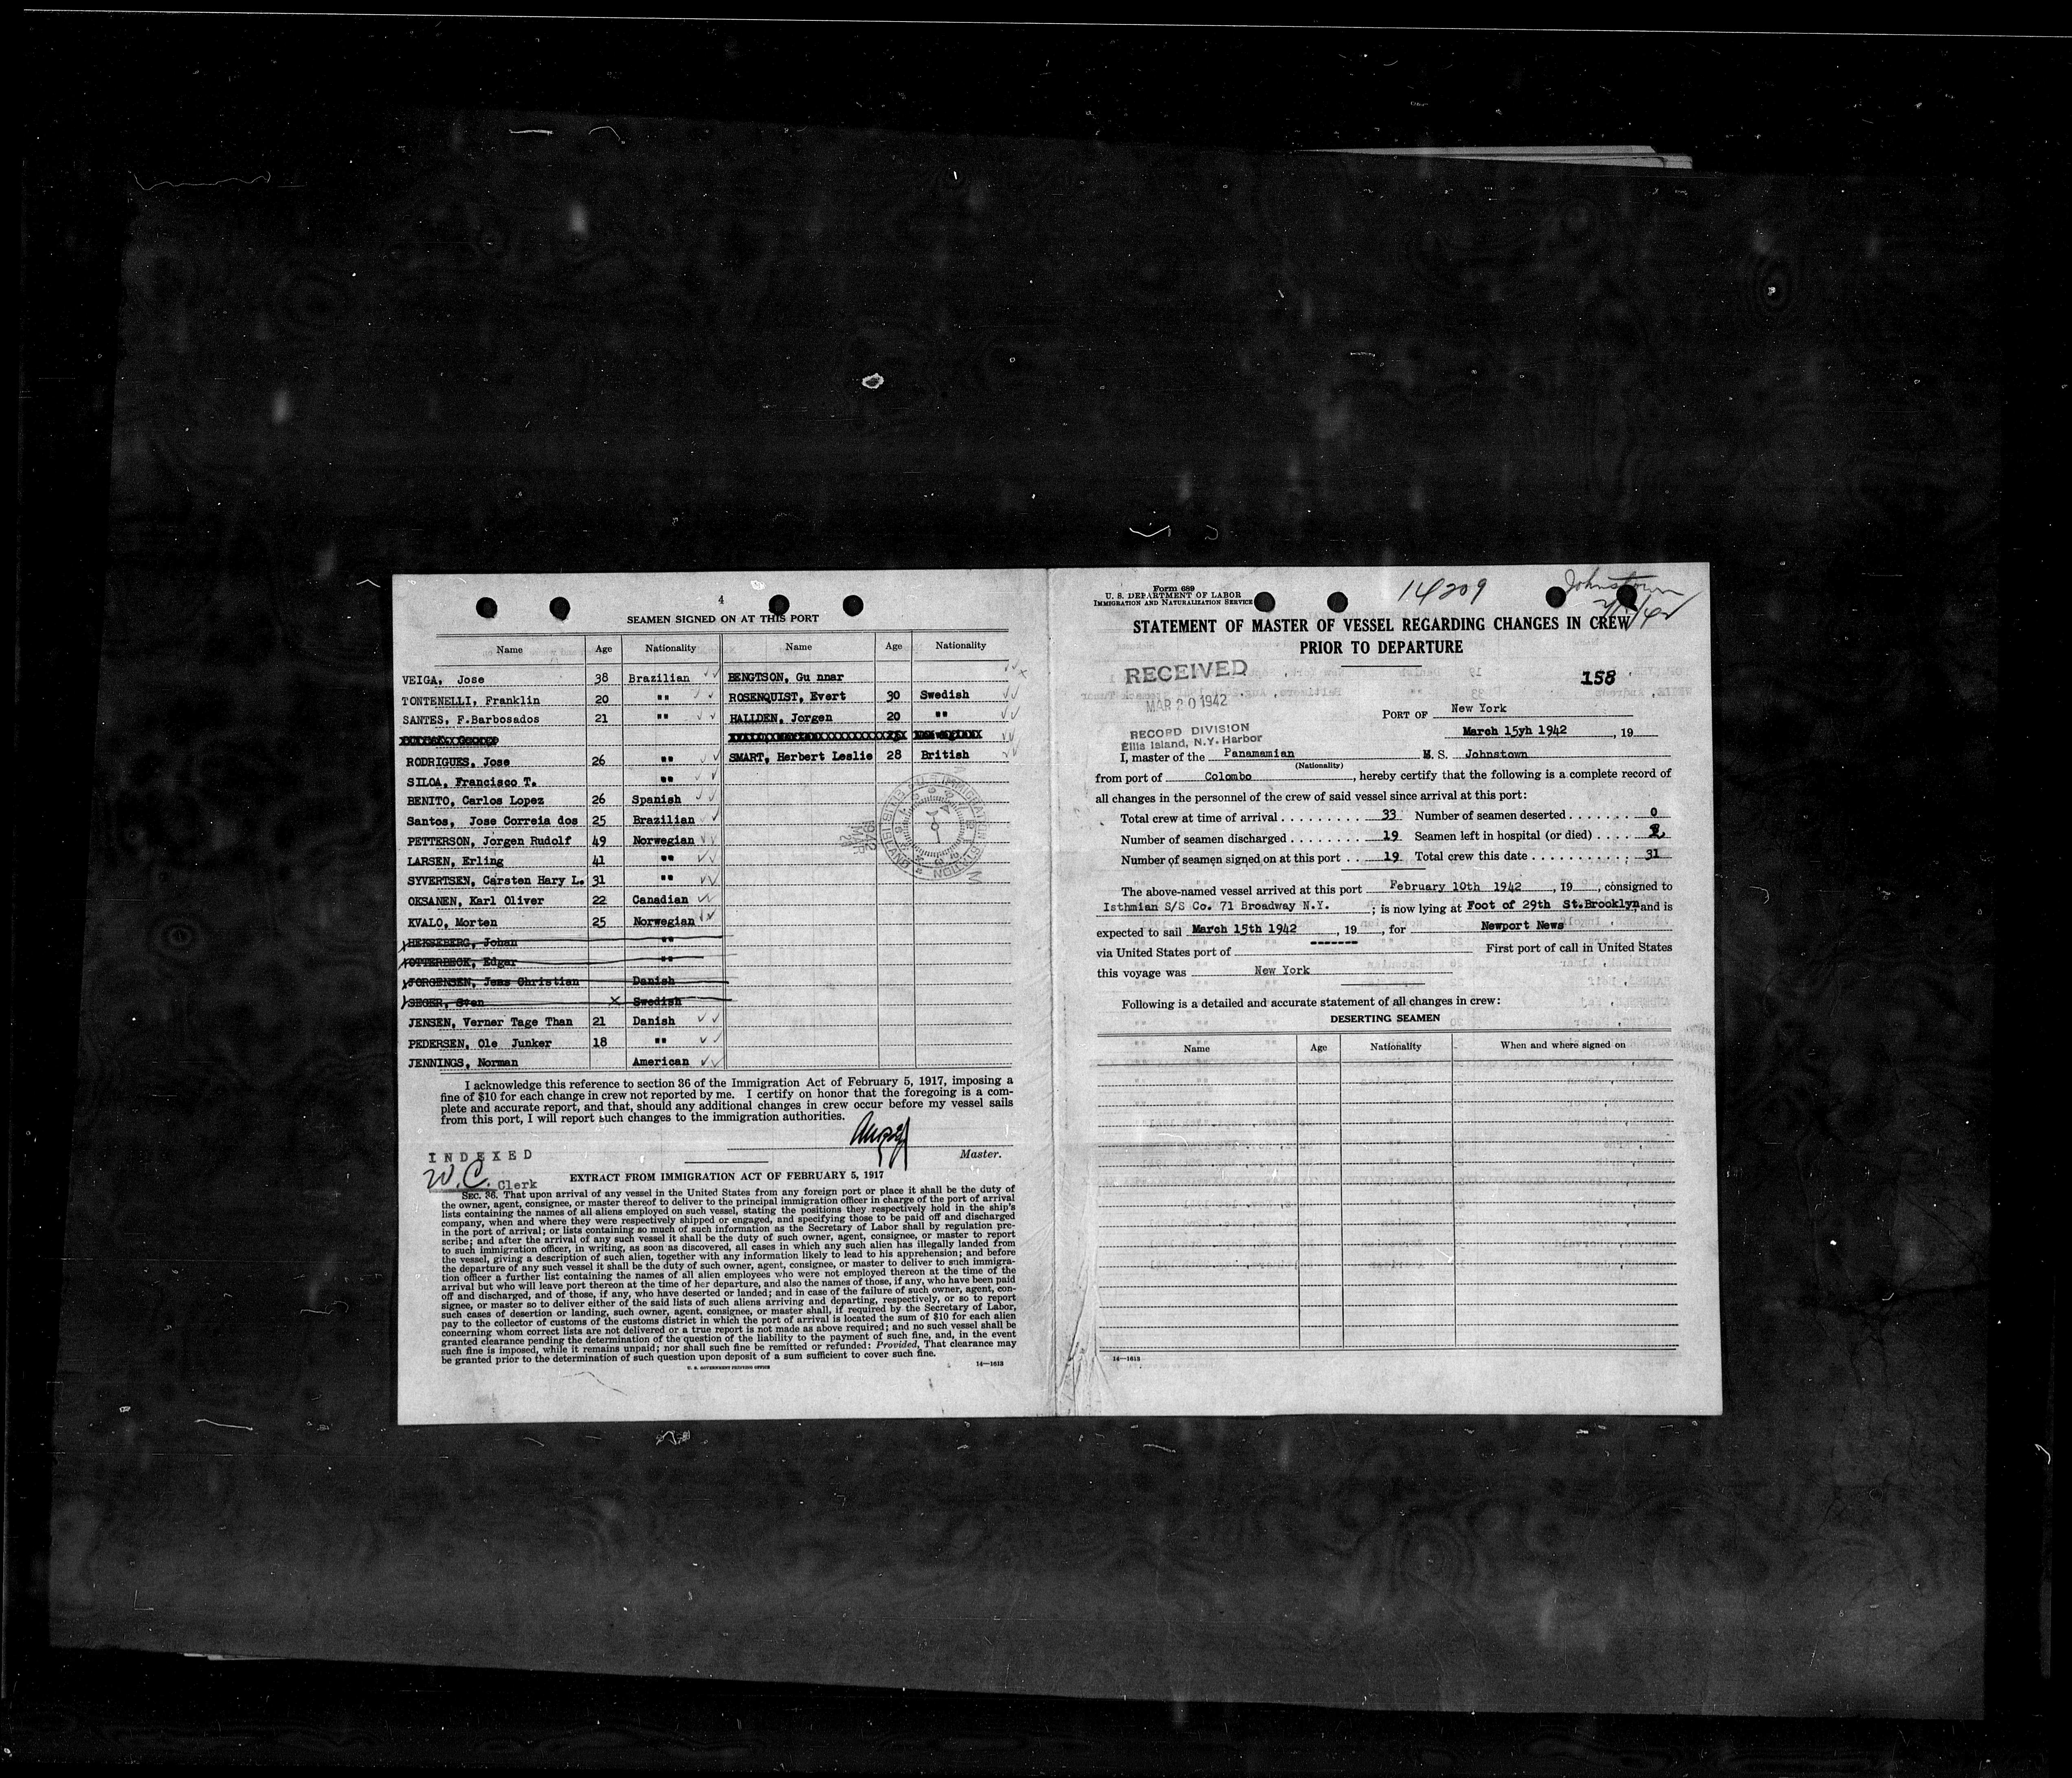 4
SEAMEN SIGNED ON AT THIS PORT
Name Age Nationality Name Age Nationality
VEIGA, Jose 38 Brazilian BENGTSON, Gu nnar
TONTENELLI, Franklin 20 "" ROSENQUIST, Evert 30 Swedish
SANTES, F.Barbosados 21 "" HALLDEN, Jorgen 20 ""
RODRIGUES, Jose 26 "" SMART, Herbert Leslie 28 British
SILOA, Francisco T. ""
BENITO, Carlos Lopez 26 Spanish
Santos, Jose Correia dos 25 Brazilian
PETTERSON, Jorgen Rudolf 49 Norwegian
LARSEN, Erling 41 ""
SYVERTSEN, Carsten Hary L. 31 ""
OKSANEN, Karl Oliver 22 Canadian
KVALO, Morten 25 Norwegian
HEKSEBERG, Johan ""
OTTERBECK, Edgar ""
JORGENSEN, Jens Christian Danish
SEGER, Sven X Swedish
JENSEN, Verner Tage Than 21 Danish
PEDERSEN, Ole Junker 18 ""
JENNINGS, Norman American
I acknowledge this reference to section 36 of the Immigration Act of February 5, 1917, imposing a
fine of $10 for each change in crew not reported by me. I certify on honor that the foregoing is a com-
plete and accurate report, and that, should any additional changes in crew occur before my vessel sails
from this port, I will report such changes to the immigration authorities.
Master.
INDEXED
W.C. Clerk
EXTRACT FROM IMMIGRATION ACT OF FEBRUARY 5, 1917
SEC. 36. That upon arrival of any vessel in the United States from any foreign port or place it shall be the duty of
the owner, agent, consignee, or master thereof to deliver to the principal immigration officer in charge of the port of arrival
lists containing the names of all aliens employed on such vessel, stating the positions they respectively hold in the ship's
company, when and where they were respectively shipped or engaged, and specifying those to be paid off and discharged
in the port of arrival; or lists containing so much of such information as the Secretary of Labor shall by regulation pre-
scribe; and after the arrival of any such vessel it shall be the duty of such owner, agent, consignee, or master to report
to such immigration officer, in writing, as soon as discovered, all cases in which any such alien has illegally landed from
the vessel, giving a description of such alien, together with any information likely to lead to his apprehension; and before
the departure of any such vessel it shall be the duty of such owner, agent, consignee, or master to deliver to such immigra-
tion officer a further list containing the names of all alien employees who were not employed thereon at the time of the
arrival but who will leave port thereon at the time of her departure, and also the names of those, if any, who have been paid
off and discharged, and of those, if any, who have deserted or landed; and in case of the failure of such owner, agent, con-
signee, or master so to deliver either of the said lists of such aliens arriving and departing, respectively, or so to report
such cases of desertion or landing, such owner, agent, consignee, or master shall, if required by the Secretary of Labor,
pay to the collector of customs of the customs district in which the port of arrival is located the sum of $10 for each alien
concerning whom correct lists are not delivered or a true report is not made as above required; and no such vessel shall be
granted clearance pending the determination of the question of the liability to the payment of such fine, and, in the event
such fine is imposed, while it remains unpaid; nor shall such fine be remitted or refunded: Provided, That clearance may
be granted prior to the determination of such question upon deposit of a sum sufficient to cover such fine.
U. S. GOVERNMENT PRINTING OFFICE 14—1613
Form 689
U. S. DEPARTMENT OF LABOR
IMMIGRATION AND NATURALIZATION SERVICE
14209
Johnstown
STATEMENT OF MASTER OF VESSEL REGARDING CHANGES IN CREW
PRIOR TO DEPARTURE
RECEIVED
MAR 20 1942
158
PORT OF New York
RECORD DIVISION
Ellis Island, N.Y. Harbor
March 15yh 1942, 19
I, master of the Panamamian M. S. Johnstown
(Nationality)
from port of Colombo, hereby certify that the following is a complete record of
all changes in the personnel of the crew of said vessel since arrival at this port:
Total crew at time of arrival . . . . . . . . . 33 Number of seamen deserted . . . . . . . 0
Number of seamen discharged . . . . . . . . 19 Seamen left in hospital (or died) . . . . 2
Number of seamen signed on at this port . . 19 Total crew this date . . . . . . . . . . 31
The above-named vessel arrived at this port February 10th 1942, 19, consigned to
Isthmian S/S Co. 71 Broadway N.Y.; is now lying at Foot of 29th St.Brooklyn, and is
expected to sail March 15th 1942, 19, for Newport News
via United States port of ------- First port of call in United States
this voyage was New York
Following is a detailed and accurate statement of all changes in crew:
DESERTING SEAMEN
Name Age Nationality When and where signed on
14—1613